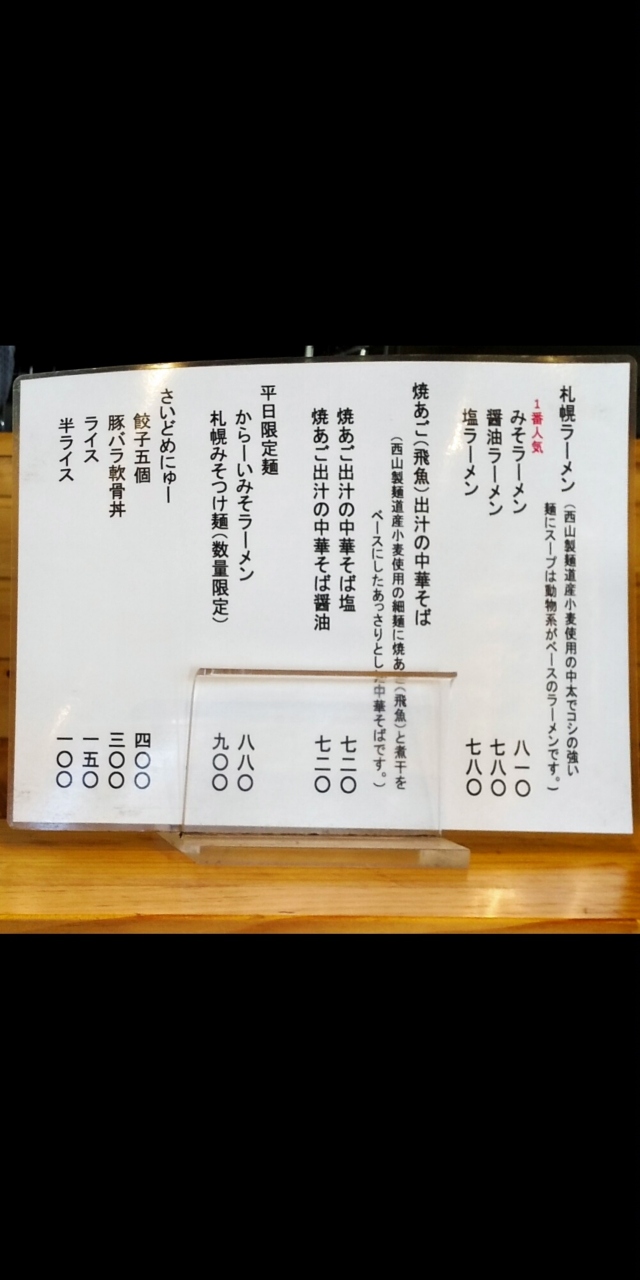 札幌ラーメン
（西山製麺道産小麦使用の中太でコシの強い
麺にスープは動物系がベースのラーメンです。）
1番人気
みそラーメン 八一〇
醤油ラーメン 七八〇
塩ラーメン 七八〇
焼あご（飛魚）出汁の中華そば
（西山製麺道産小麦使用の細麺に焼あご（飛魚）と煮干を
ベースにしたあっさりとした中華そばです。）
焼あご出汁の中華そば塩 七二〇
焼あご出汁の中華そば醤油 七二〇
平日限定麺
からーいみそラーメン 八八〇
札幌みそつけ麺（数量限定） 九〇〇
さいどめにゅー
餃子五個 四〇〇
豚バラ軟骨丼 三〇〇
ライス 一五〇
半ライス 一〇〇